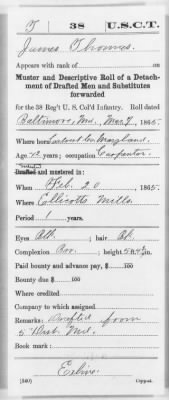 T | 38 | U.S.C.T.
James Thomas
Appears with rank of
Muster and Descriptive Roll of a Detach-
ment of Drafted Men and Substitutes
forwarded
for the 38 Reg't U. S. Col'd Infantry. Roll dated
Baltimore, Md., Mar. 7, 1865.
Where born Maryland.
Age, y'rs; occupation Carpenter
Drafted and mustered in:
When Feb. 20, 1865.
Where Ellicotts Mills.
Period 1 years.
Eyes Blk; hair Bl.
Complexion; height 5 ft. in.
Paid bounty and advance pay, $ 100
Bounty due $ 100
Where credited
Company to which assigned
Remarks: Drafted from
5 Dist. Md.
Book mark:
(340) Copyist.